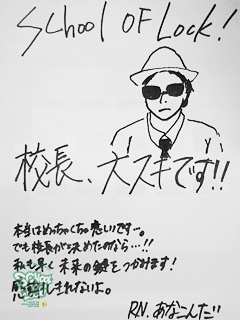 SCHOOL OF LOCK!
校長、大スキです!!
本当はめっちゃくちゃ悲しいです…。
でも校長が決めたのなら…!!
私も早く未来の鍵をつかみます!
しきれないよ。
RN.あなこんだ